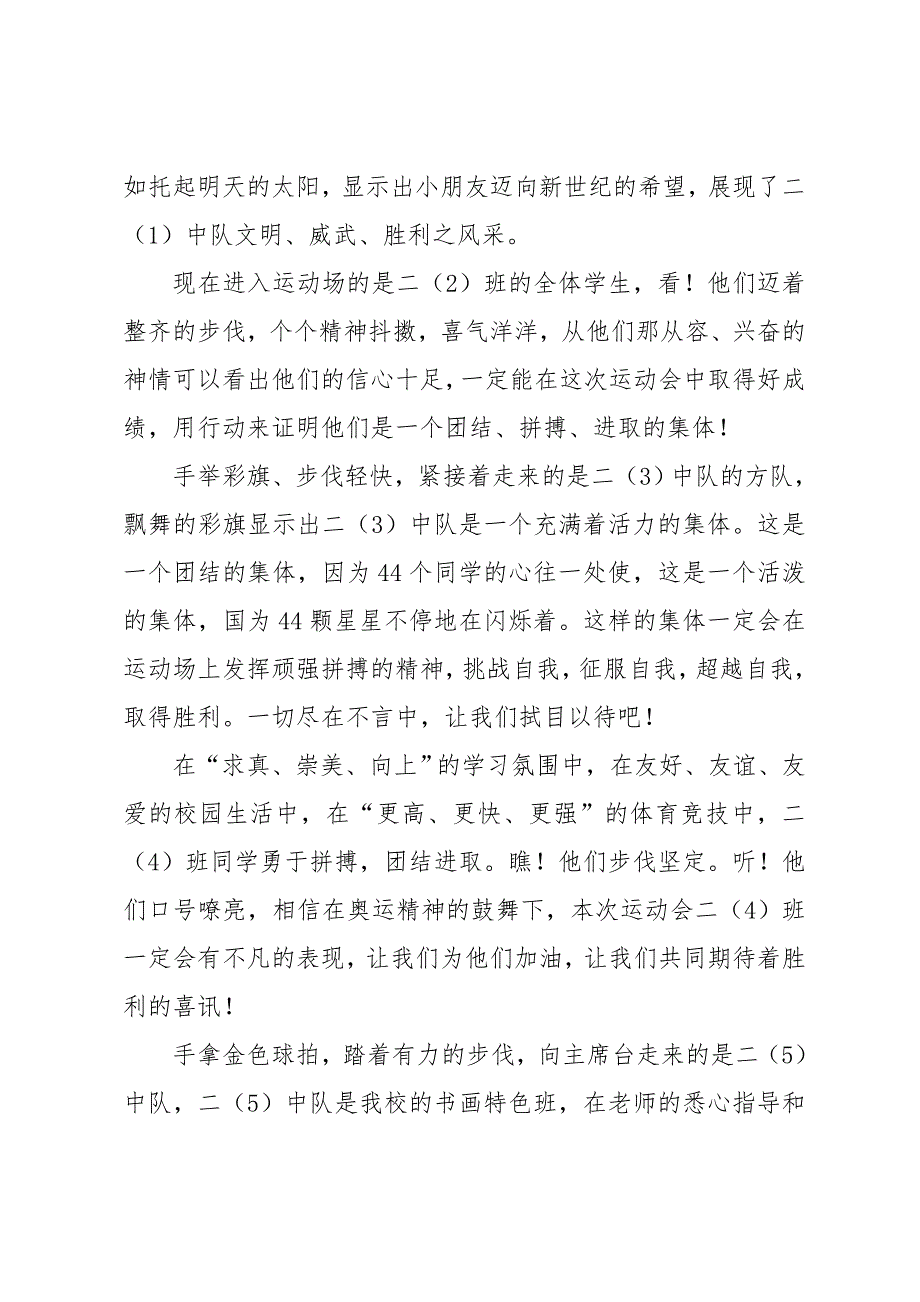 如托起明天的太阳，显示出小朋友迈向新世纪的希望，展现了二
（1）中队文明、威武、胜利之风采。
现在进入运动场的是二（2）班的全体学生，看！他们迈着
整齐的步伐，个个精神抖擞，喜气洋洋，从他们那从容、兴奋的
神情可以看出他们的信心十足，一定能在这次运动会中取得好成
绩，用行动来证明他们是一个团结、拼搏、进取的集体！
手举彩旗、步伐轻快，紧接着走来的是二（3）中队的方队，
飘舞的彩旗显示出二（3）中队是一个充满着活力的集体。这是
一个团结的集体，因为 44 个同学的心往一处使，这是一个活泼
的集体，国为 44 颗星星不停地在闪烁着。这样的集体一定会在
运动场上发挥顽强拼搏的精神，挑战自我，征服自我，超越自我，
取得胜利。一切尽在不言中，让我们拭目以待吧！
在“求真、崇美、向上”的学习氛围中，在友好、友谊、友
爱的校园生活中，在“更高、更快、更强”的体育竞技中，二
（4）班同学勇于拼搏，团结进取。瞧！他们步伐坚定。听！他
们口号嘹亮，相信在奥运精神的鼓舞下，本次运动会二（4）班
一定会有不凡的表现，让我们为他们加油，让我们共同期待着胜
利的喜讯！
手拿金色球拍，踏着有力的步伐，向主席台走来的是二（5）
中队，二（5）中队是我校的书画特色班，在老师的悉心指导和